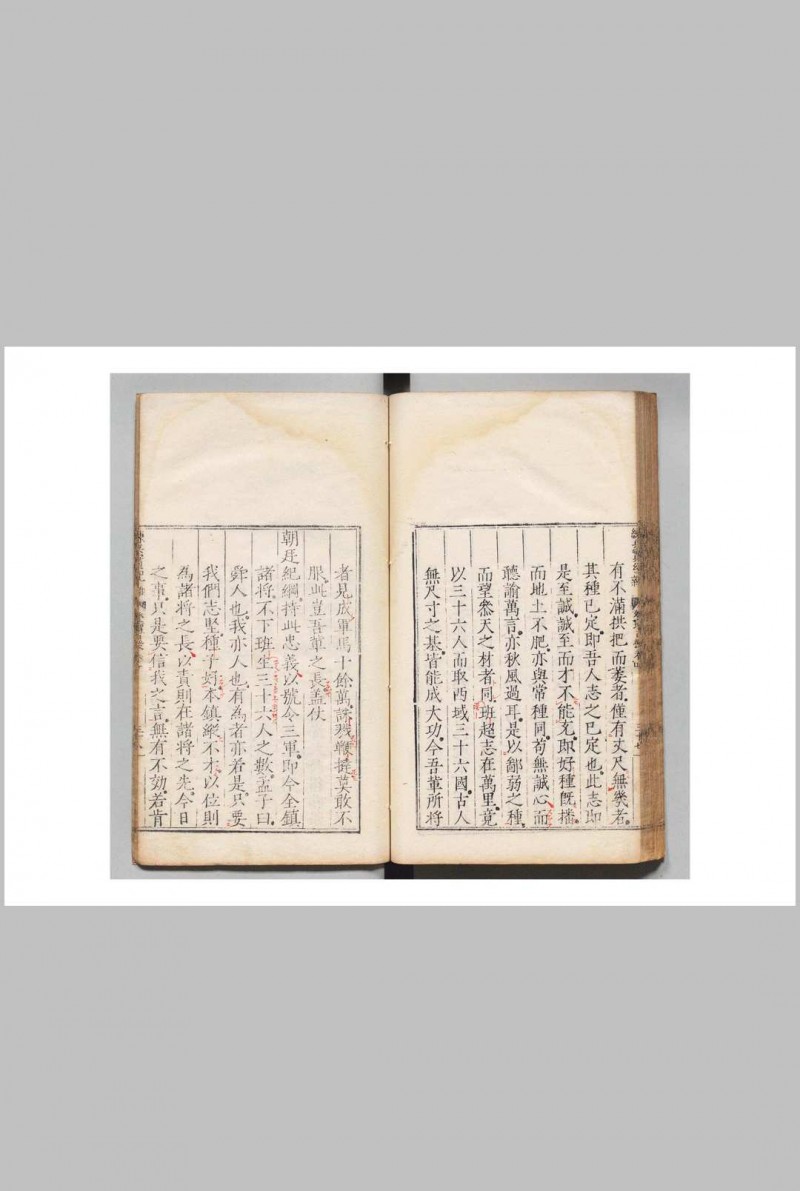 有不滿拱把而萎者僅有丈尺無幾者
其種已定即吾人志之已定也此志即
是至誠誠至而才不能充即好種旣播
而地土不肥亦與常種同苟無誠心而
聽諭萬言亦秋風過耳是以鄙弱之種
而望參天之材者同班超志在萬里竟
以三十六人而取西域三十六國古人
無尺寸之基皆能成大功今吾輩所將
者見成軍馬十餘萬誅戮鞭撻莫敢不
服此豈吾輩之長盖仗
朝廷紀綱持此忠義以號令三軍即今全鎮
諸將不下班生三十六人之數孟子曰
舜人也我亦人也有為者亦若是只要
我們志堅種子好本鎮縱不才以位則
為諸將之長以責則在諸將之先今日
之事只是要信我之言無有不効若肯